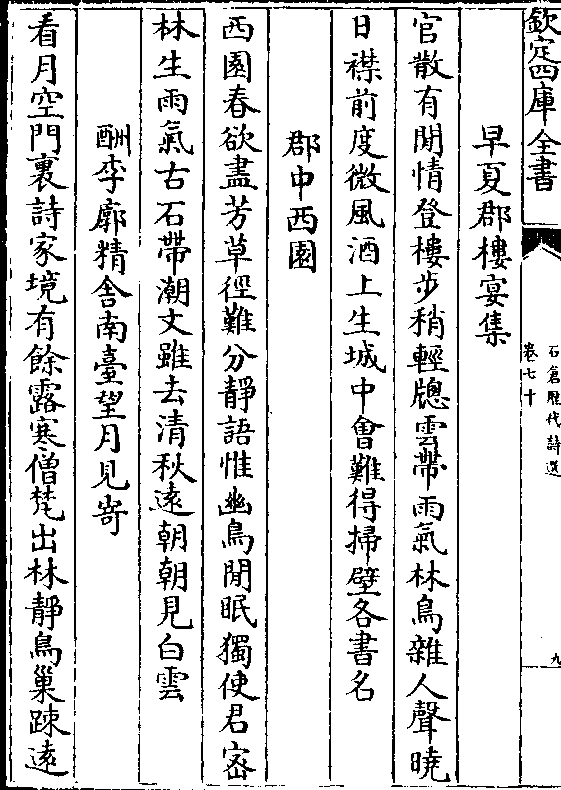 欽定四庫全書
石倉歷代詩選
卷七十
九
早夏郡樓宴集
官散有閒情登樓步稍輕牕雲帶雨氣林鳥雜人聲曉
日襟前度微風酒上生城中會難得掃壁各書名
郡中西園
西園春欲盡芳草徑難分靜語惟幽鳥閒眠獨使君宻
林生雨氣古石帶潮文雖去清秋遠朝朝見白雲
酬李廓精舍南臺望月見寄
看月空門裏詩家境有餘露寒僧梵出林靜鳥巢踈遠